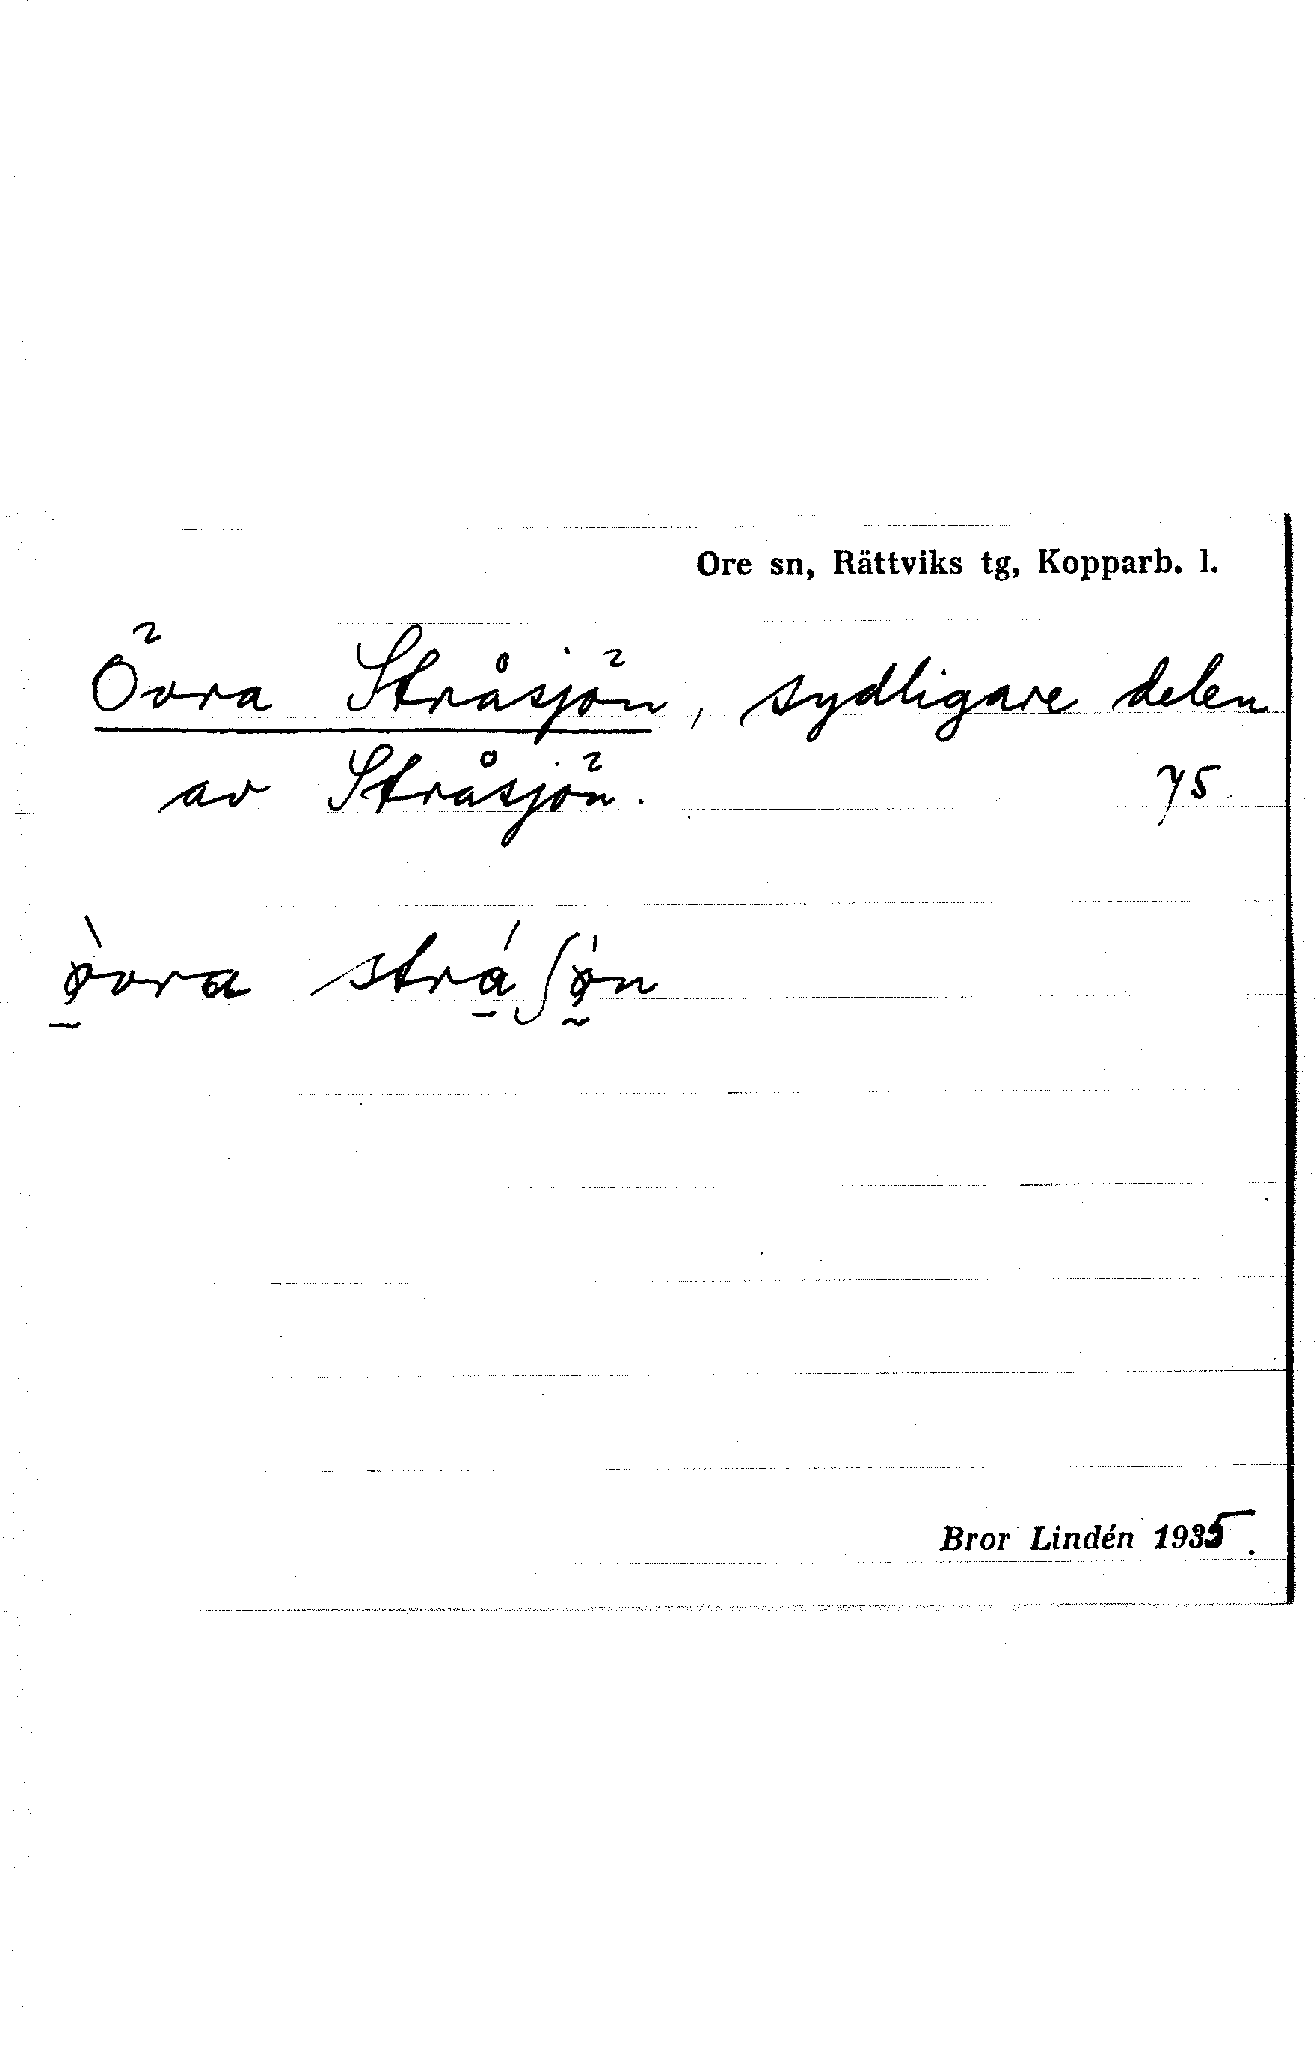 Ore sn, Rättviks tg, Kopparb. l.
Övra Stråsjön, sydligare delen
av Stråsjön. 75
ø̀vra strá ʃøn
Bror Lindén 1935.